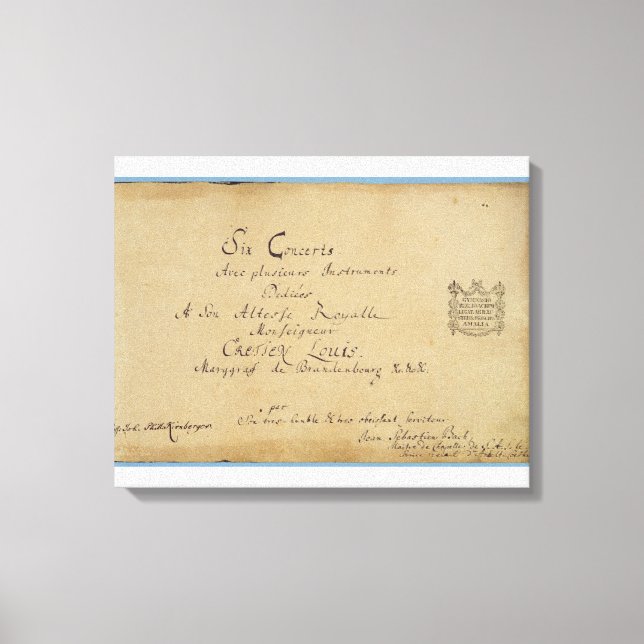 Six Concerts
Avec plusieurs Instruments
Dediées
A Son Altesse Royalle
Monseigneur
CRETIEN LOUIS.
Marggraf de Brandenbourg &c. &c. &c.
par
Son tres-humble & tres obeissant serviteur
Jean Sebastien Bach
Maitre de Chapelle de S. A. S. le
Prince regnant d'Anhalt-Coethen
Joh. Kirnberger.
GYMNASIO
REGIO JOACHIM
LEGAT. AB ILLU
AMALIA